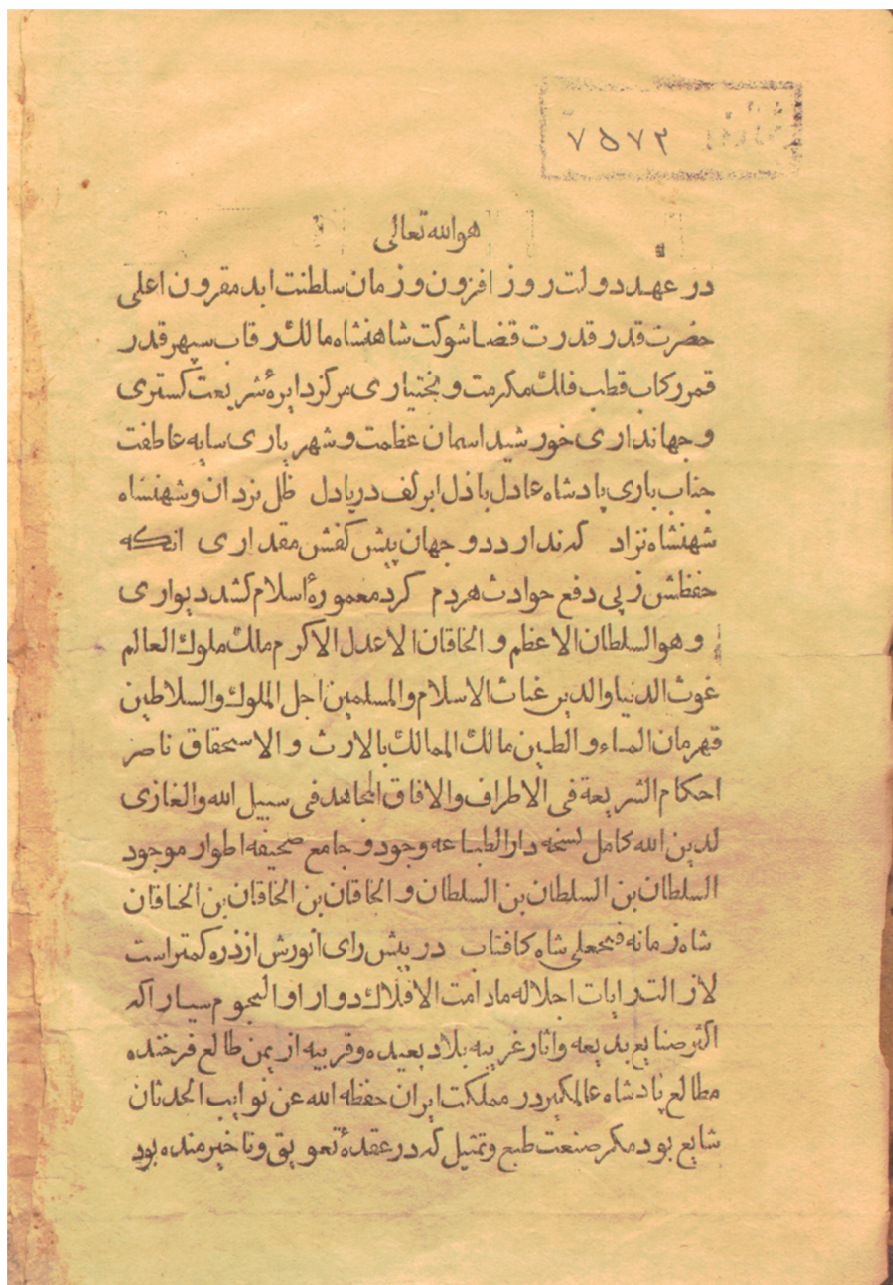 ۷۵۷۲
هوالله تعالی
در عهد دولت روز افزون و زمان سلطنت ابد مقرون اعلی
حضرت قدر قدرت قضا شوکت شاهنشاه مالك رقاب سپهر قدر
قمر رکاب قطب فلك مکرمت و بختیاری مرکز دایرهٔ شریعت کستری
و جهانداری خورشید اسمان عظمت و شهر یاری سایه عاطفت
جناب باری پادشاه عادل باذل ابر کف دریادل ظل یزدان و شهنشاه
شهنشاه نزاد که ندارد دو جهان پیش کفش مقداری انکه
حفظش ز پی دفع حوادث هردم کرد معمورهٔ اسلام کشد دیواری
و هو السلطان الاعظم و الخاقان الاعدل الاکرم مالك ملوك العالم
غوث الدنیا والدین غیاث الاسلام والمسلمین اجل الملوك والسلاطین
قهرمان الماء و الطین مالك الممالك بالارث و الاستحقاق ناصر
احکام الشریعة فی الاطراف والافاق المجاهد فی سبیل الله والغازی
لدین الله کامل نسخه دارالطباعه وجود و جامع صحیفه اطوار موجود
السلطان بن السلطان بن السلطان و الخاقان بن الخاقان بن الخاقان
شاه زمانه فتحعلی شاه کافتاب در پیش رای انورش از ذره کمتر است
لازالت رایات اجلاله مادامت الافلاك دوارا والنجوم سیارا که
اکثر صنایع بدیعه واثار غریبه بلاد بعیده و قریبه از یمن طالع فرخنده
مطالع پادشاه عالمکیر در مملکت ایران حفظه الله عن نوایب الحدثان
شایع بود مکر صنعت طبع و تمثیل که در عقدهٔ تعویق و تاخیر مانده بود